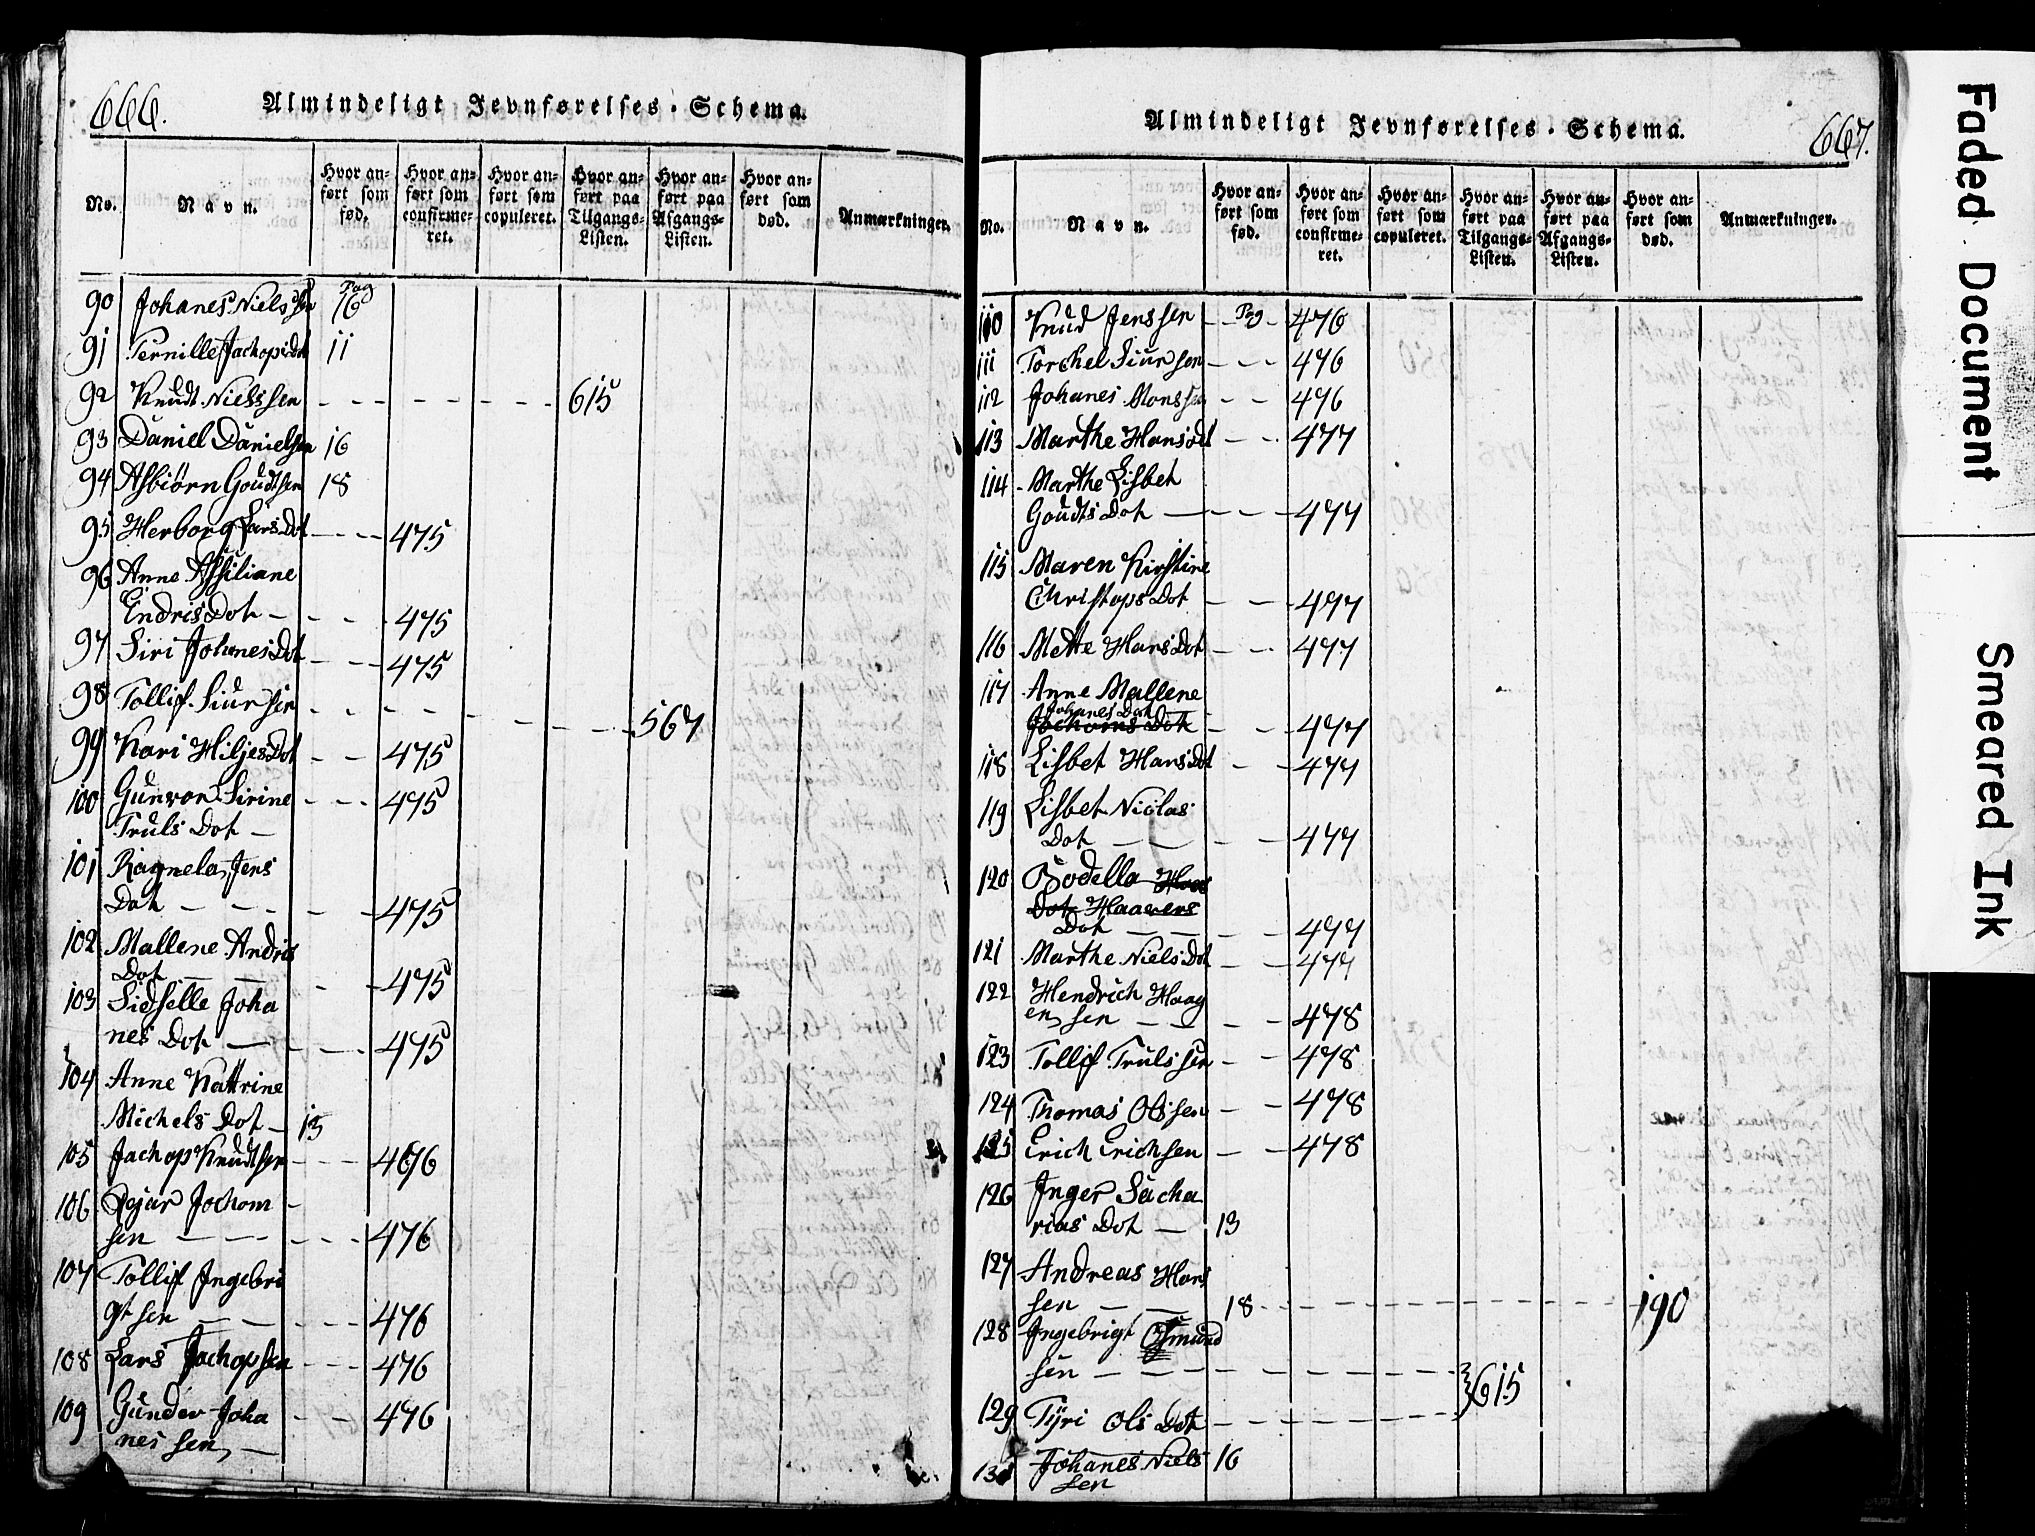 666.
Almindeligt Jevnførelses-Schema.
No.
Navn.
Hvor an-
ført som
fød.
Hvor an-
ført som
confirme-
ret.
Hvor an-
ført som
copuleret.
Hvor an-
ført paa
Tilgangs-
Listen.
Hvor an-
ført paa
Afgangs-
Listen.
Hvor an-
ført som
død.
Anmærkninger.
Pag
90 Johanes Nielssen 16
91 Pernille JachopsDot 11
92 Knudt Nielssen - - - - - - 615
93 Daniel Danielsen 16
94 Asbiørn Goudtsen 18
95 Herborg LarsDot - - - 475
96 Anne Assiliane
EndrisDot - - - - 475
97 Siri JohanesDot - - - 475
98 Tollif Siursen - - - - - - - - - 567
99 Kari HiljesDot - - 475
100 Gunvor Sirine - - - 475
Truls Dot -
101 Ragnela Jens
Dot - - - - - 475
102 Mallene Andris
Dot - - - - 475
103 Sidselle Joha
nes Dot - - - - 475
104 Anne Kattrine
Michels Dot - 13
105 Jachop Knudtsen - - - 476
106 Jochom -
sen - - - - - - 476
107 Tollif Ingebri
gtsen - - - - - 476
108 Lars Jachopsen - - - 476
109 Gunder Joha - - 476
nessen, -
667.
Almindeligt Jevnførelses-Schema.
No.
Navn.
Hvor an-
ført som
fød.
Hvor an-
ført som
confirme-
ret.
Hvor an-
ført som
copuleret.
Hvor an-
ført paa
Tilgangs-
Listen.
Hvor an-
ført paa
Afgangs-
Listen.
Hvor an-
ført som
død.
Anmærkninger.
110 Knud Jenssen - - Pag - 476
111 Torchel Siursen - - - 476
112 Johanes Monssen - - 476
113 Marthe Hansdot - - 477
114 Marthe Lisbet
Goudts Dot - - - - 477
115 Maren Kirstine
Christops Dot - - - 477
116 Mette HansDot - - 477
117 Anne Mallene
Johanes Dot
Jochoms Dot - - - 477
118 Lisbet HansDot - - 477
119 Lisbet Niclas
Dot - - - - 477
120 Bodella
Dot Haavers
Dot - - - - 477
121 Marthe NielsDot - - 477
122 Hendrich Haag
ensen - - - - 478
123 Tollif Trulssen - - 478
124 Thomas Olssen - - 478
125 Erich Erichsen - - 478
126 Inger Sacha
rias Dot - 13
127 Andreas Hans
sen - - 18 - - - - - - - - - - 190
128 Ingebrigt Osmund
sen - - - - - - - - 615
129 Tyri Ols Dot - - - - - -
130 Johanes Niels 16
sen
Faded Document
Smeared Ink